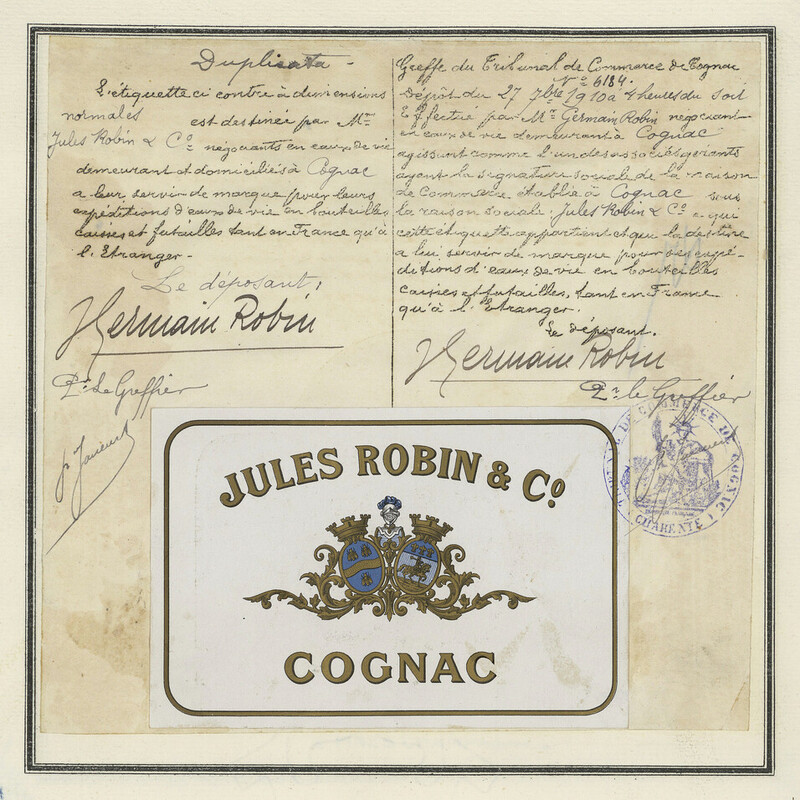 Duplicata -
L'étiquette ci contre à dimensions
normales est destinée par Mrs
Jules Robin & Co négociants en eaux de vie
demeurant et domiciliés à Cognac
a leur servir de marque pour leurs
expéditions d'eaux de vie en bouteilles
caisses et futailles tant en France qu'à
l'Etranger -
Le déposant,
Germain Robin
Pr Le Greffier
Greffe du Tribunal de Commerce de Cognac
No 6184.
Dépôt du 27 7bre 1910 à 4 heures du soir
Effectué par Mr Germain Robin négociant
en eaux de vie demeurant à Cognac
agissant comme l'un des associés gérants
ayant la signature sociale de la maison
de Commerce établie à Cognac sous
la raison sociale Jules Robin & Co e qui
cette étiquette appartient et qui la destine
a lui servir de marque pour ses expé-
ditions d'eaux de vie en bouteilles
caisses et futailles, tant en France
qu'à l'Etranger.
Le déposant.
Germain Robin
Pr le Greffier
TRIBUNAL DE COMMERCE DE COGNAC
(CHARENTE)
JULES ROBIN & Co.
COGNAC